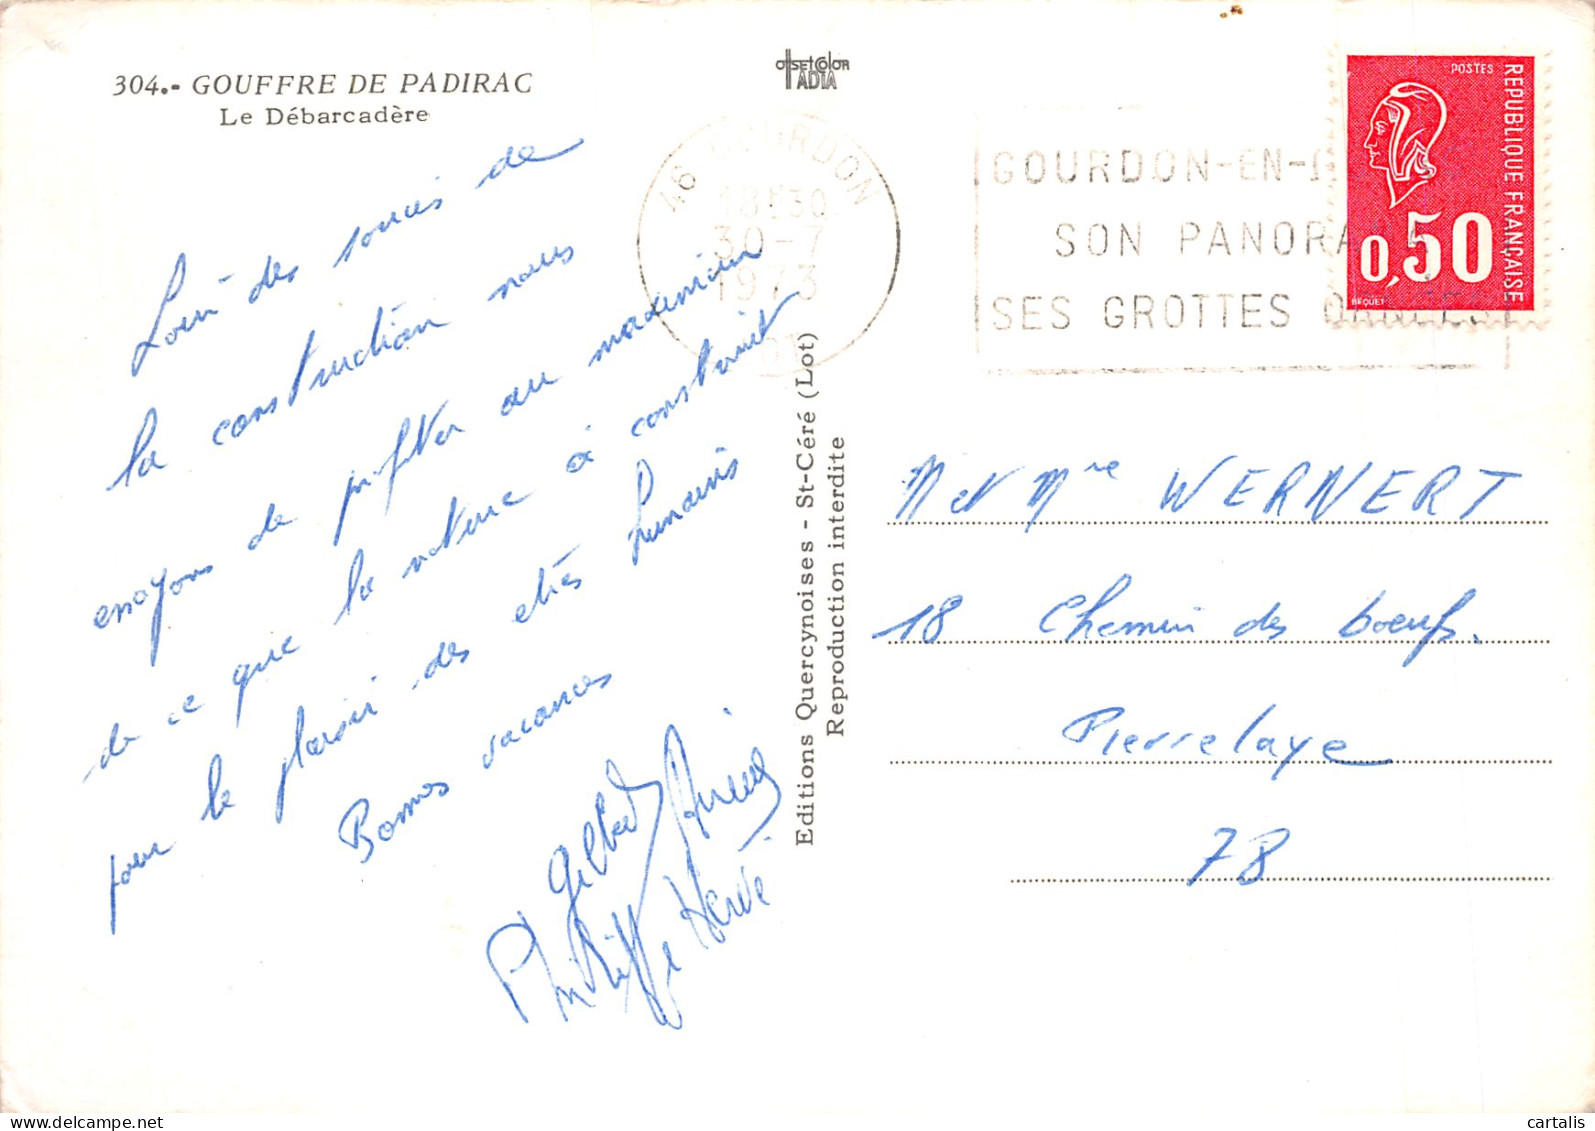 304.- GOUFFRE DE PADIRAC
Le Débarcadère
Loin des soucis de
la construction nous
essayons de profiter au maximum
de ce que la nature à construit
pour le plaisir des etrês humains
Bonnes vacances
Gilbert
Philippe Hervé
offsetcolor
TADIA
46 GOURDON
18H30
30-7
1973
01
GOURDON-EN-
SON PANORA
SES GROTTES ORNEES
POSTES
REPUBLIQUE FRANÇAISE
0,50
BEQUET
Editions Quercynoises - St-Céré (Lot)
Reproduction interdite
M et Mme WERNERT
18 Chemin des boeufs.
Pierrelaye
78
cartalis